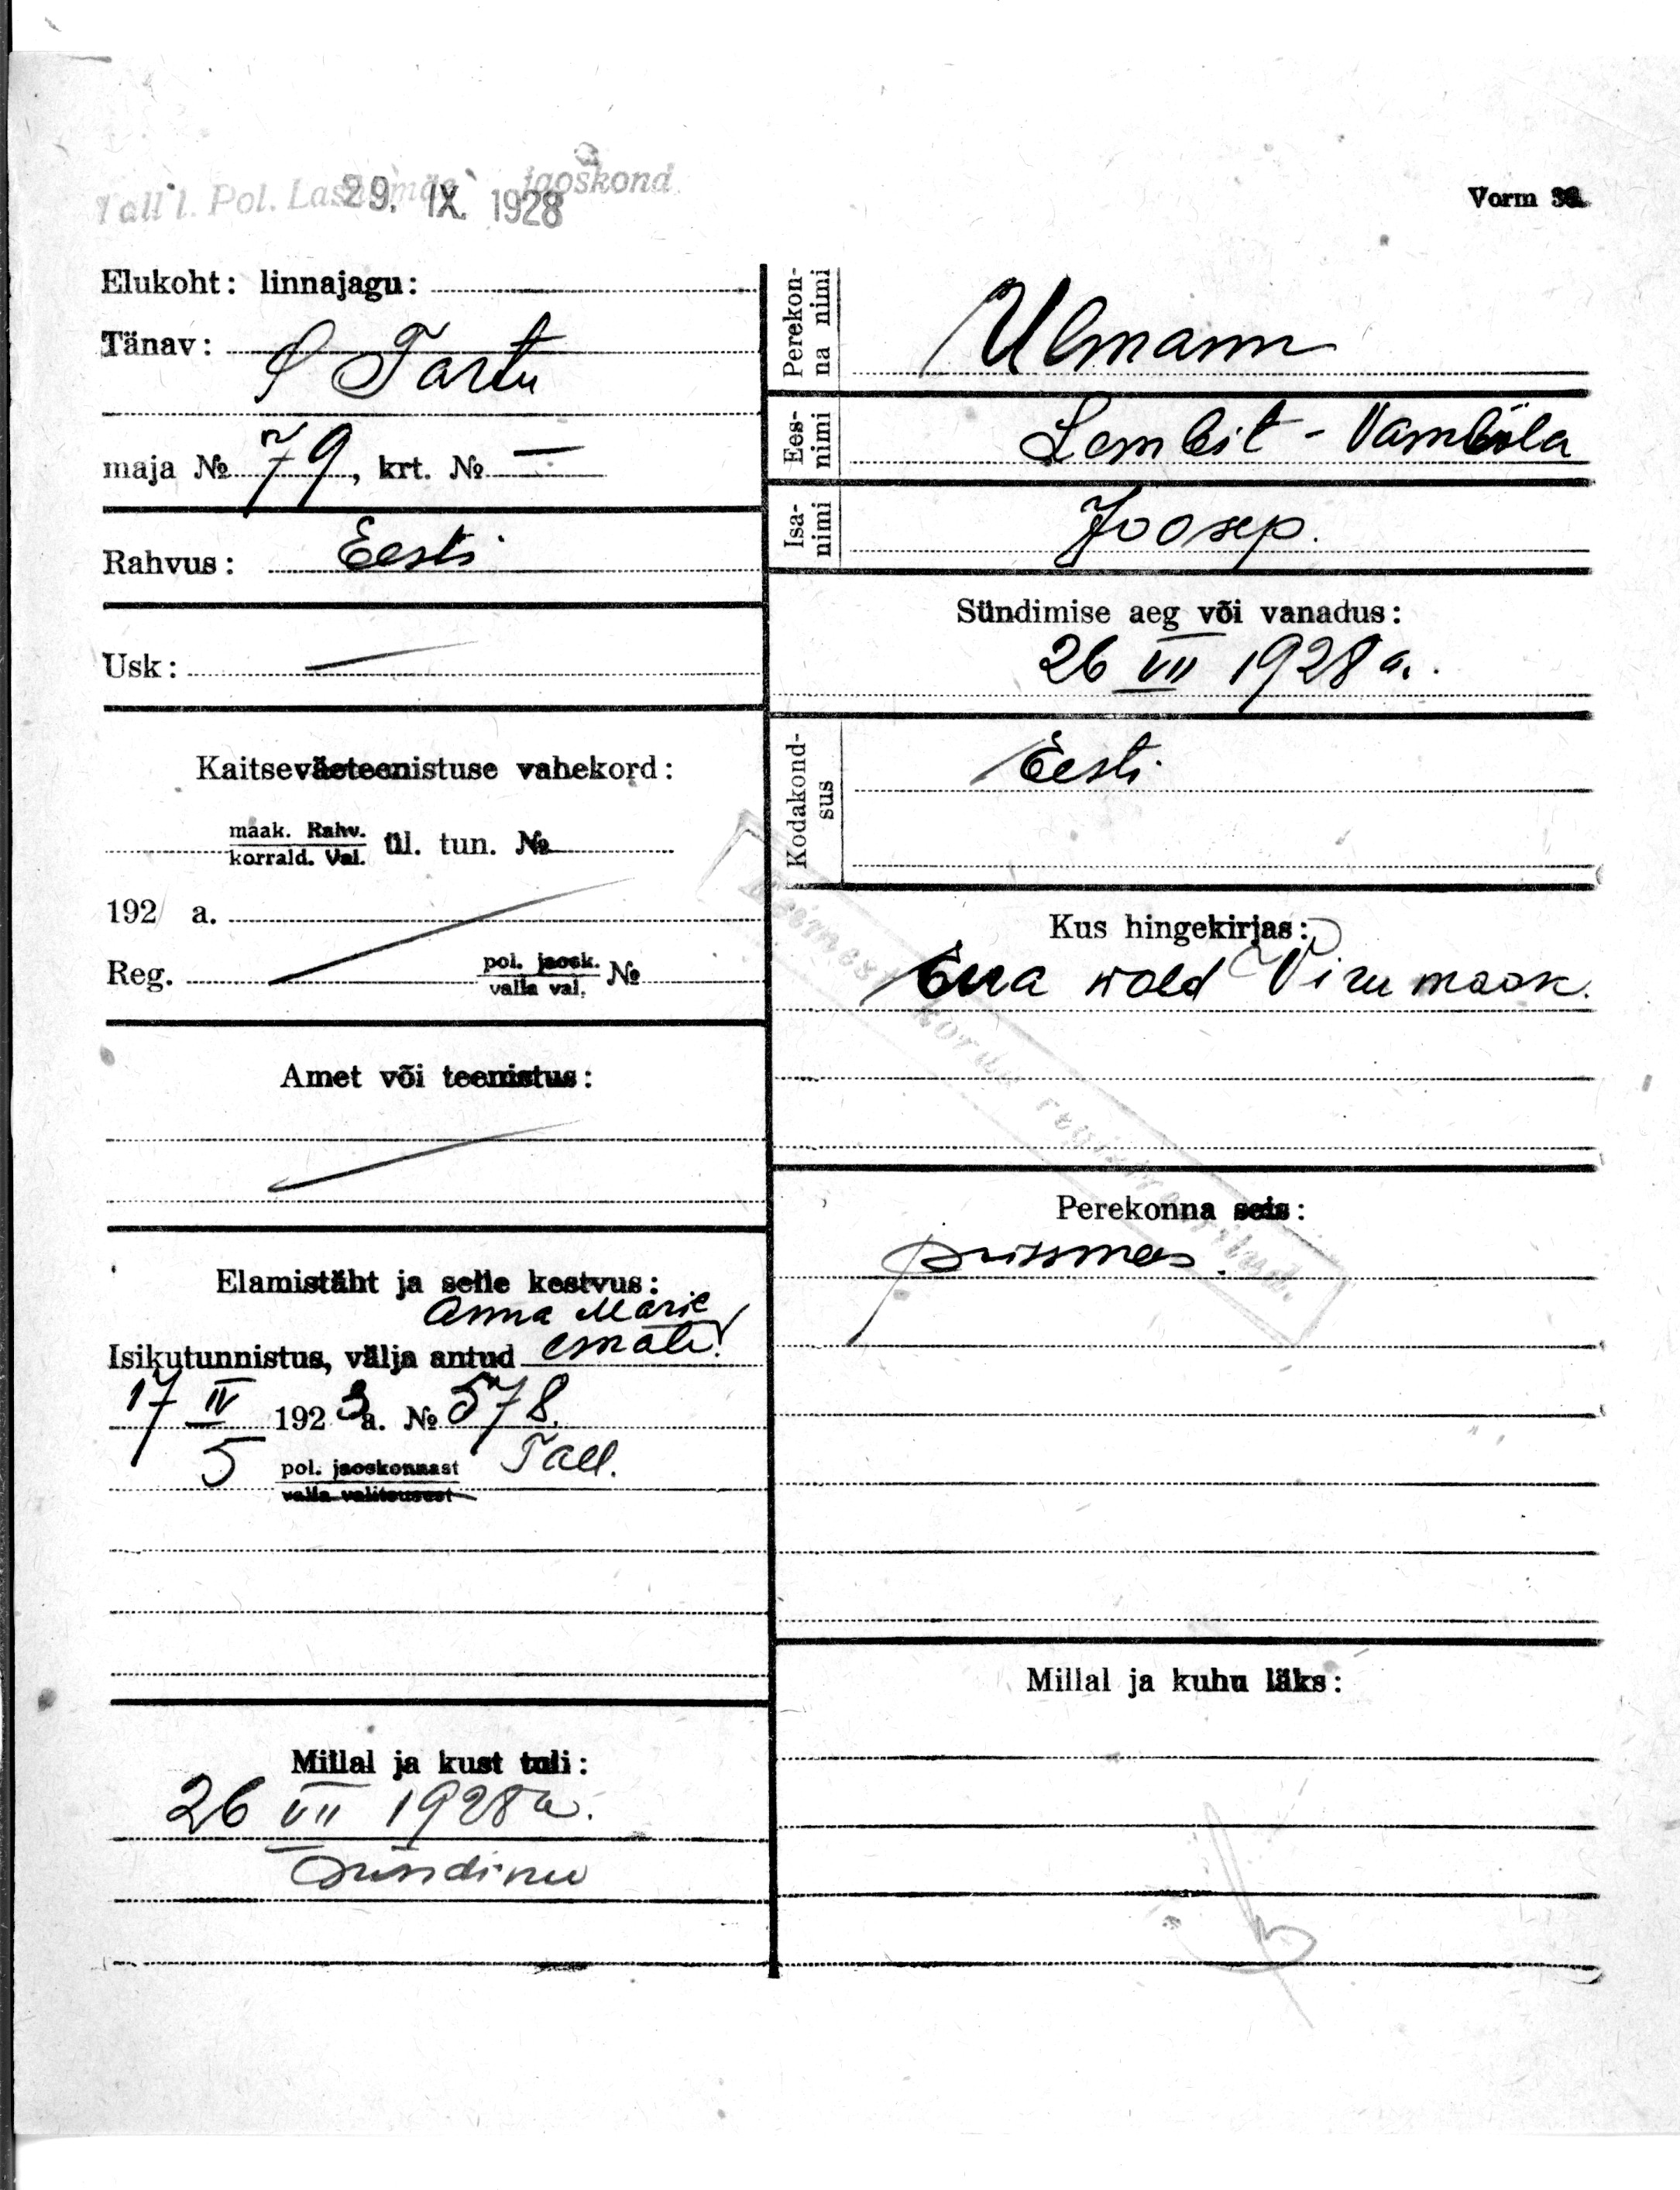 Tall l. Pol. Lasnamäe jaoskond
29. IX. 1928
Vorm
Elukoht: linnajagu:
Tänav: S Tartu
maja № 79, krt. № —
Rahvus: Eesti
Usk: —
Kaitseväeteenistuse vahekord:
maak. Rahv.
korrald. Val. ül. tun. №
192 a.
Reg. pol. jaosk.
valla val. №
Amet või teenistus:
Elamistäht ja selle kestvus:
Anna Marie
Isikutunnistus, välja antud emale
17 IV 1923 a. № 578.
5 pol. jaoskonnast Tall.
valla valitsusest
Millal ja kust tuli:
26 VII 1928 a.
Sündinu
Perekon-
na nimi
Ulmann
Ees-
nimi
Lembit - Vambola
Isa-
nimi
Joosep.
Sündimise aeg või vanadus:
26 VII 1928 a.
Kodakond-
sus
Eesti
Kus hingekirjas:
wald Viru maak.
Esimest korda registreeritud.
Perekonna seis:
poissmees.
Millal ja kuhu läks: